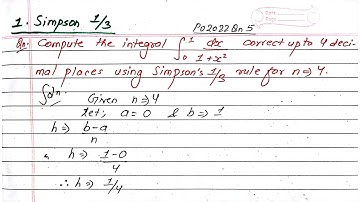 1. Simpson 1/3
PO2022 Qn 5
Qn. Compute the integral ∫₀¹ dx/1+x² correct upto 4 deci-
mal places using Simpson's 1/3 rule for n=> 4.
Given n=>4
Let, a = 0 & b => 1
h => b-a/n
h => 1-0/4
∴ h => 1/4